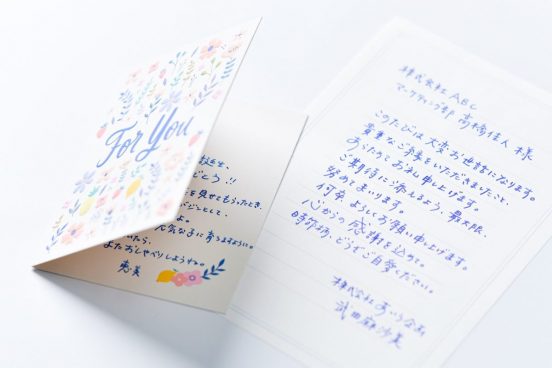 For You
とう!!
を見せてもらったとき、
元気な子に育ちますように。
たら、
またおしゃべりしようね。
恵美
株式会社ABC
マーケティング部 高橋佳人 様
このたびは大変お世話になります。
貴重なご縁をいただきましたこと、
あらためてお礼申し上げます。
ご期待に添えるよう、最大限、
努めてまいります。
何卒よろしくお願い申し上げます。
心からの感謝を込めて。
時節柄、どうぞご自愛ください。
株式会社あいう企画
武田麻沙美